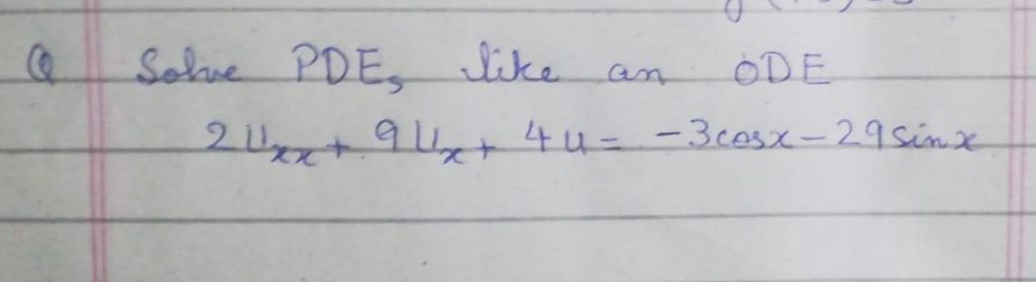 Q Solve PDEs like an ODE
2Uxx + 9Ux + 4u = -3cosx - 29sinx